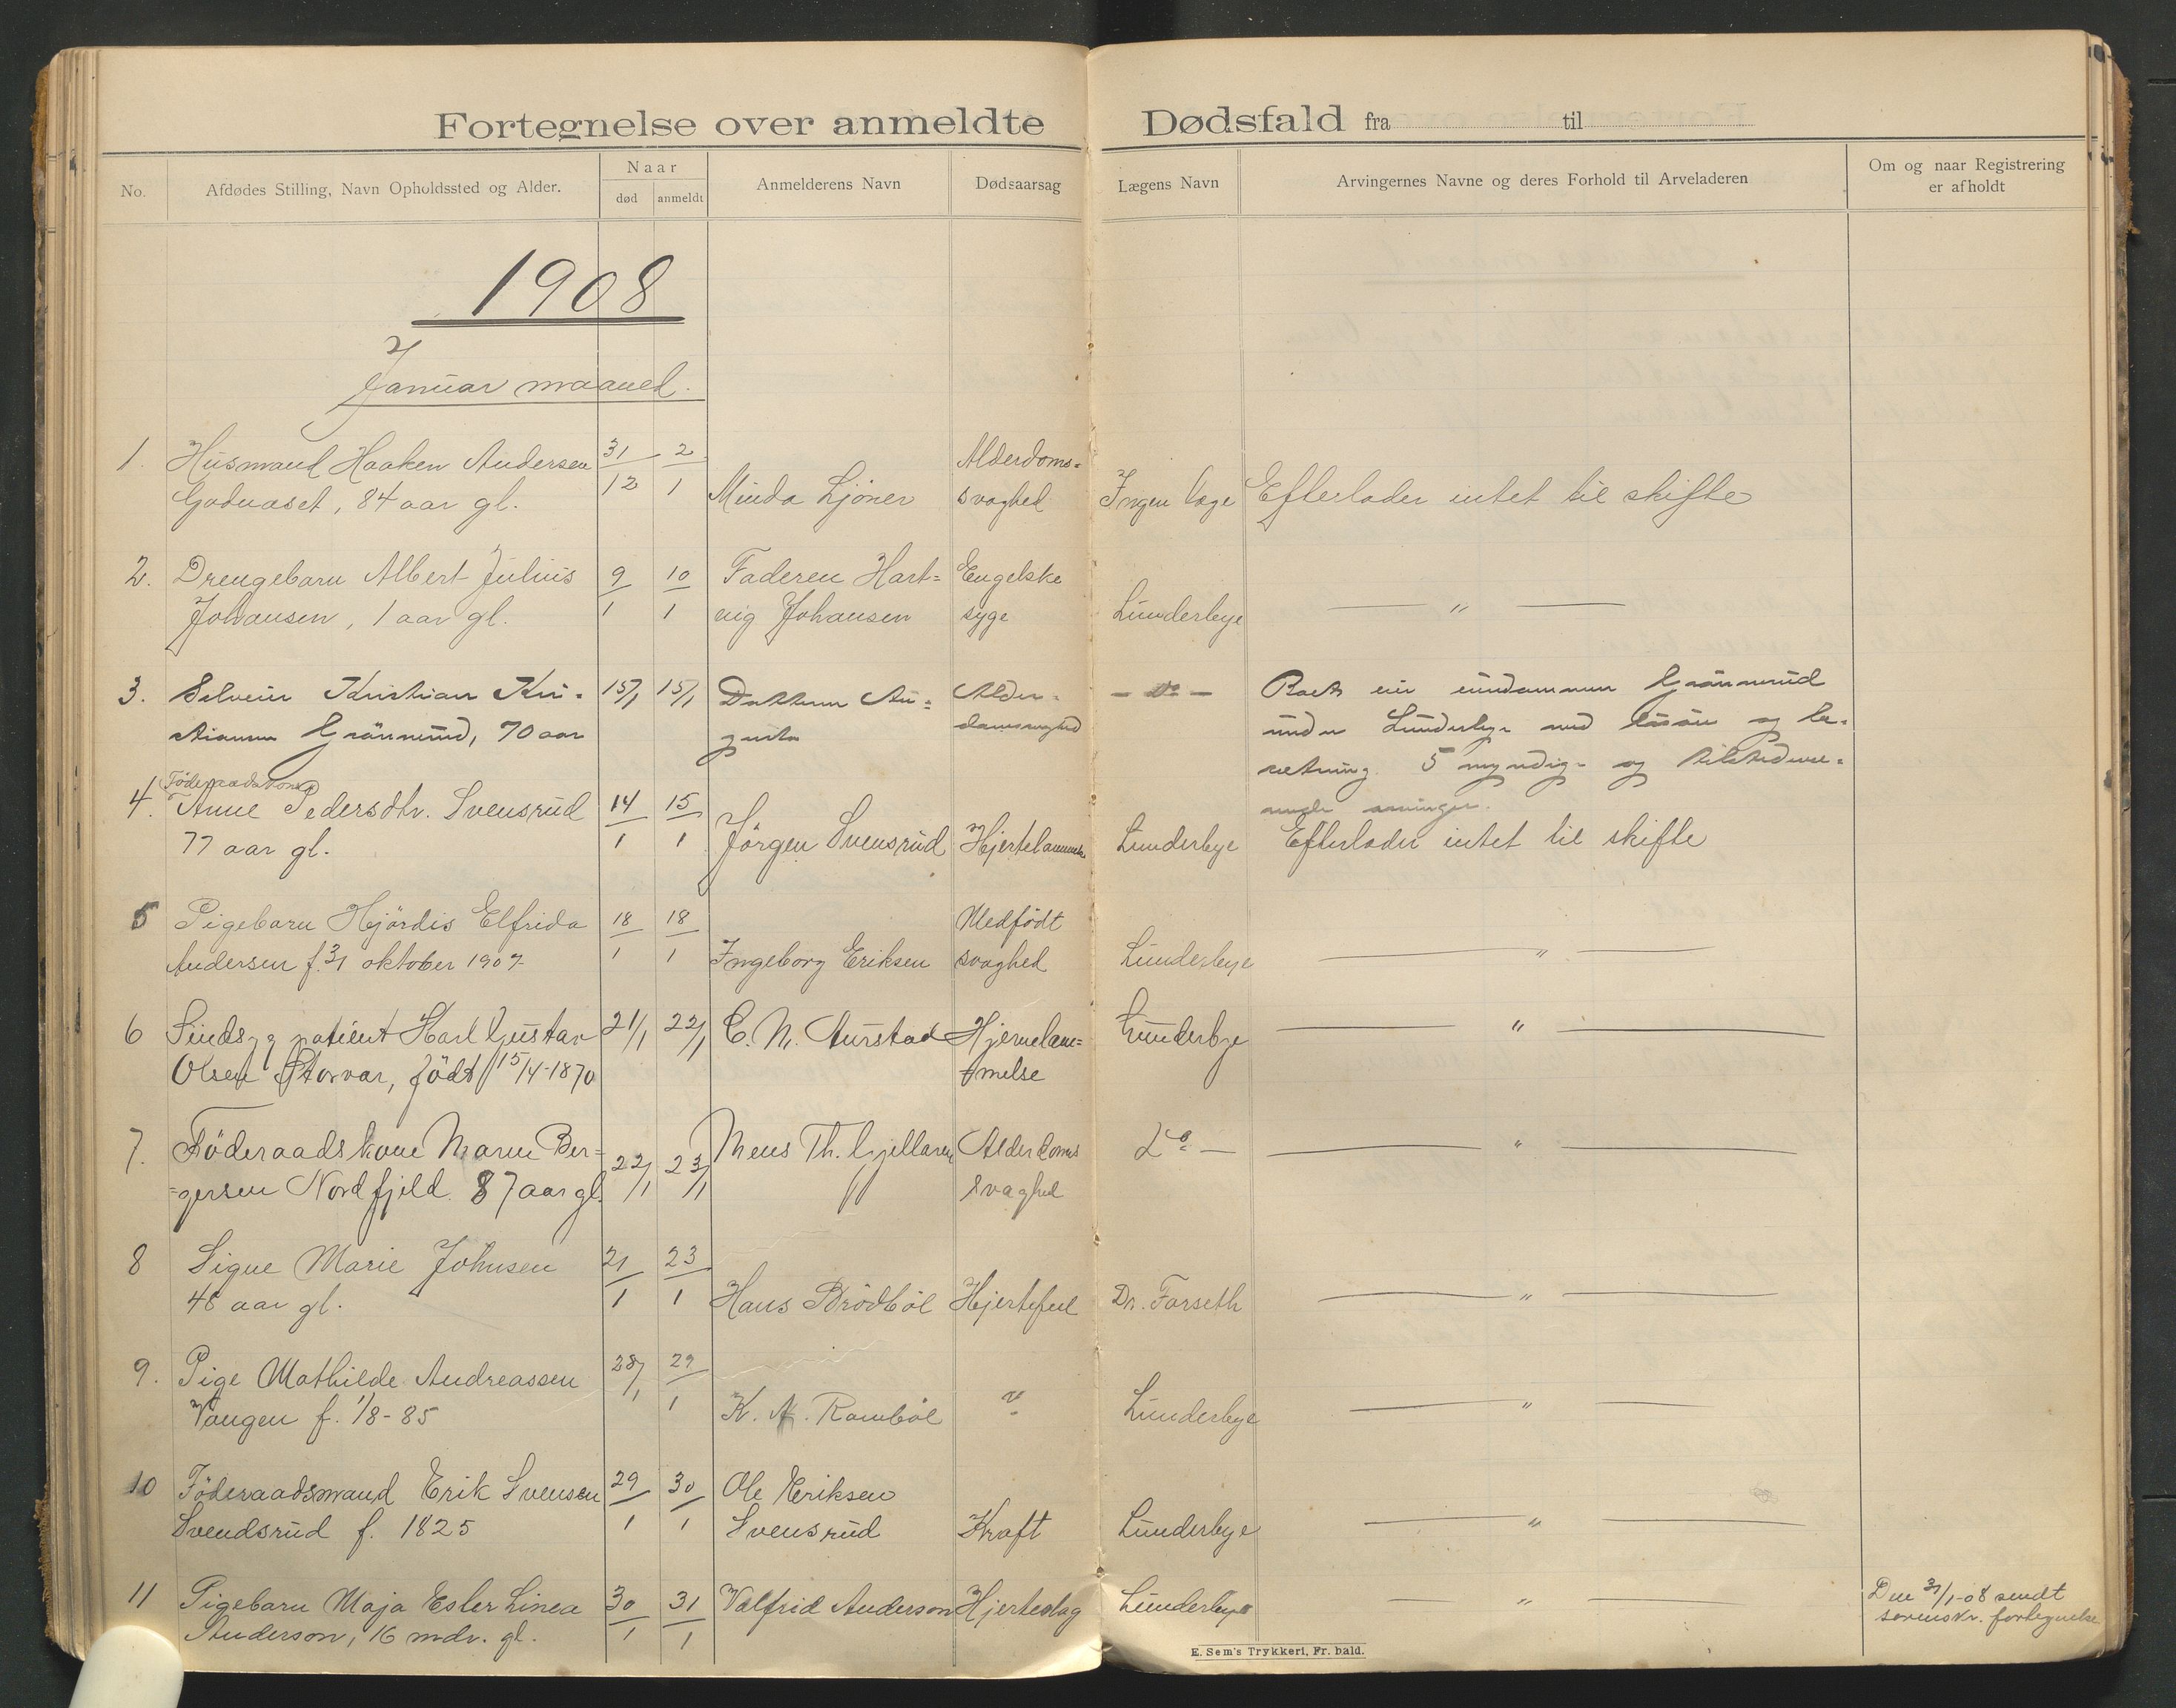 Fortegnelse over anmeldte Dødsfald fra til
No.
Afdødes Stilling, Navn Opholdssted og Alder.
Naar
død
anmeldt
Anmelderens Navn
Dødsaarsag
Lægens Navn
Arvingernes Navne og deres Forhold til Arveladeren
Om og naar Registrering
er afholdt
1908
Januar maaned.
1. Husmand Haaken Andersen 31/12 2/1 Minda Ljöner Alderdoms=
Godnaset, 84 aar gl. svaghed Ingen læge Efterlader intet til skifte
2. Drengebarn Albert Julius 9/1 10/1 Faderen Hart= Engelske
Johansen, 1 aar gl. vig Johansen syge Lunderbye — " —
3. Selveier Kristian Kri= 15/1 15/1 Datteren Au= Alder= — do — Boets eier eiendommen Grönnerud
stiansen Grönnerud, 70 aar gusta domssvaghed under Lunderbye med lösöre og be=
sætning. 5 myndige og tilstedevæ=
rende arvinger.
4. Föderaadskone
Anne Pedersdtr. Svensrud 14/1 15/1
77 aar gl. Jörgen Svensrud Hjertelammelse Lunderbye Efterlader intet til skifte
5 Pigebarn Hjördis Elfrida 18/1 18/1 Medfödt
Andersen f. 31 oktober 1907 Ingeborg Eriksen svaghed Lunderbye — " —
6 Sindssyg patient Karl Gustav 21/1 22/1 C. N. Aurstad Hjernelam= Lunderbye — " —
Olsen Storvar, födt 15/4-1870 melse
7. Föderaadskone Maren Ber= 22/1 23/1 Mens Th. Alderdoms do — — " —
=gersen Nordfjeld. 87 aar gl. " svaghed
8 Signe Marie Johnsen 21/1 23/1
48 aar gl. Hans Brödböl Hjertefeil Dr. Forseth — " —
9. Pige Mathilde Andreassen 28/1 29/1
Vangen f. 1/8-85 K. A. Ramböl " Lunderbye — " —
10 Föderaadsmand Erik Svensen 29/1 30/1 Ole Eriksen
Svendsrud f. 1825 Svensrud Kræft Lunderbye — " —
11 Pigebarn Maja Ester Linea 30/1 31/1 Valfrid Anderson Hjerteslag Lunderbye — " — Den 31/1-08 sendt
Anderson, 16 mdr. gl. sorenskr. fortegnelse
E. Sem's Trykkeri, Fr. hald.